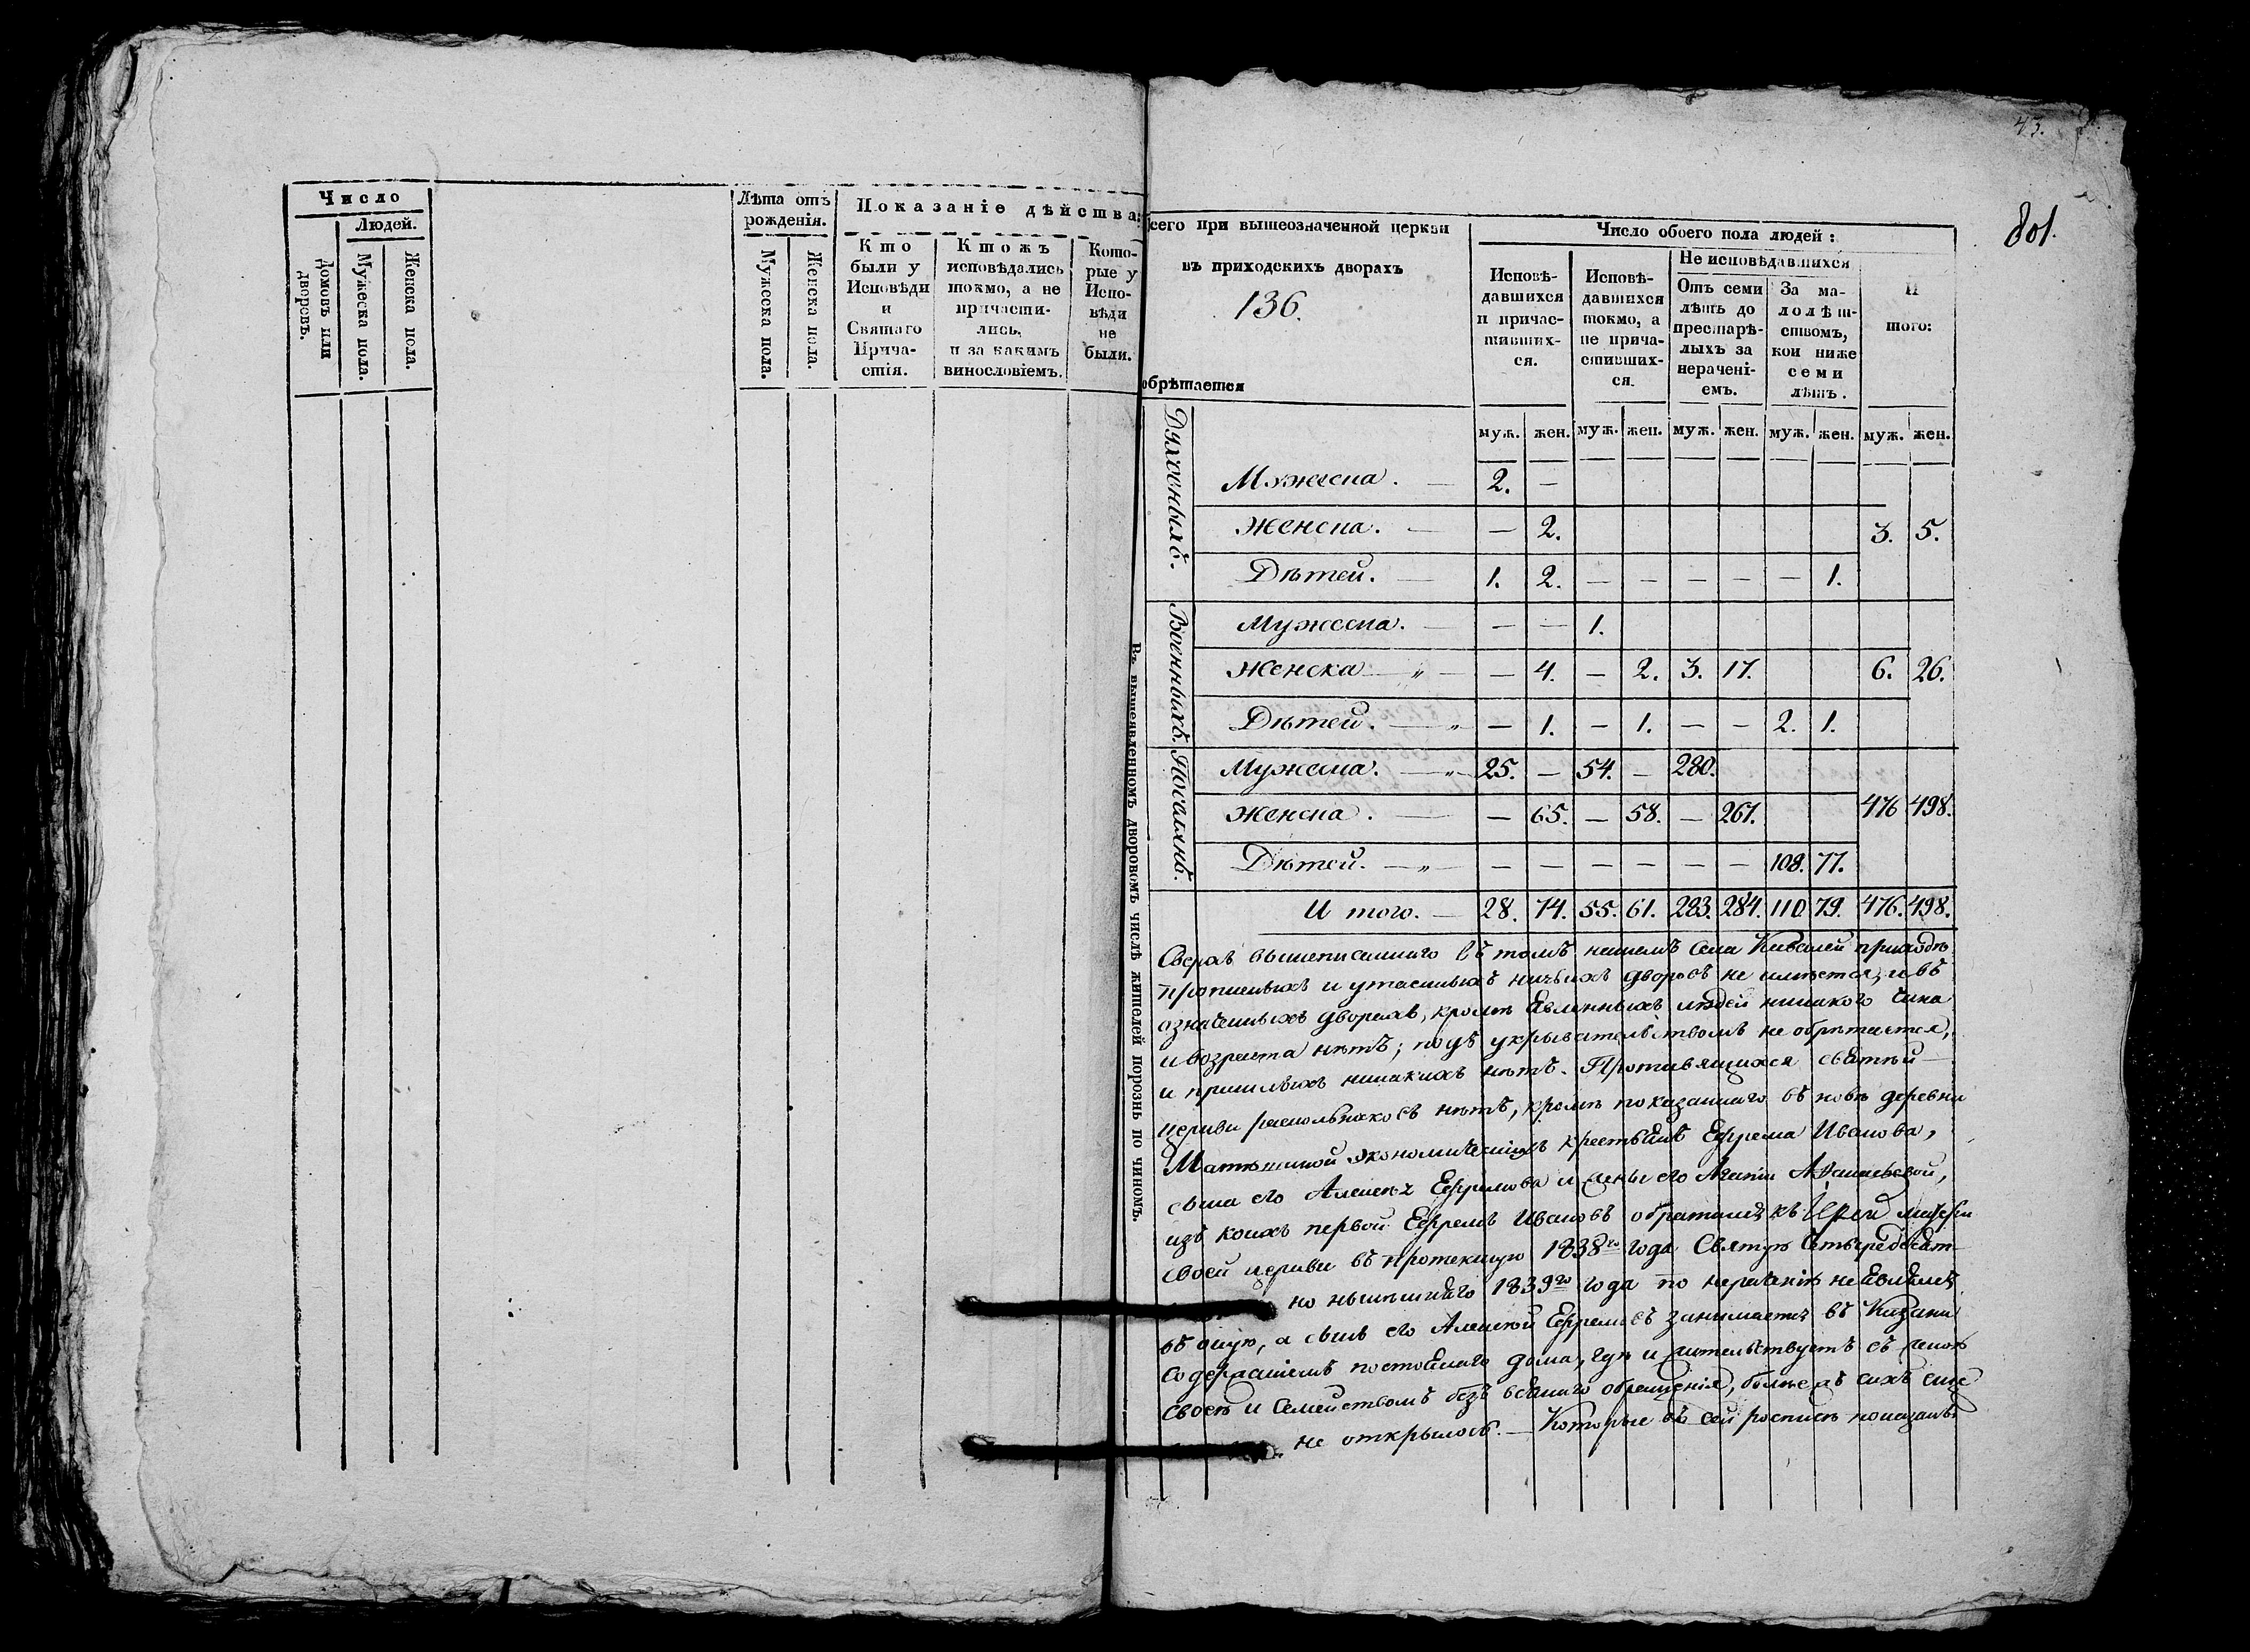 Число
Людей.
Домовъ или дворовъ.
Мужеска пола.
Женска пола.
Лѣта отъ рожденія.
Мужеска пола.
Женска пола.
Показаніе дѣйства:
Кто были у Исповѣди и Святаго Причастія.
Ктожъ исповѣдались токмо, а не причастились, и за какимъ винословіемъ.
Которые у Исповѣди не были.
43.
801.
сего при вышеозначенной церкви
въ приходскихъ дворахъ
136.
обрѣтается
Число обоего пола людей:
Исповѣдавшихся и причастившихся.
Исповѣдавшихся токмо, а не причастившихся.
Не исповѣдавшихся
Отъ семи лѣтъ до престарѣлыхъ за нераченіемъ.
За малолѣтствомъ, кои ниже семи лѣтъ.
И того:
муж. жен. муж. жен. муж. жен. муж. жен. муж. жен.
Въ вышеявленномъ дворовомъ числѣ жителей порознь по чиномъ.
Духовныхъ.
Мужеска. — 2. —
Женска. — — 2. 3. 5.
Дѣтей. — 1. 2. — — — — — 1.
Военныхъ.
Мужеска. — — — 1.
Женска — „ — — 4. — 2. 3. 17. 6. 26.
Дѣтей. — „ — 1. — 1. — — 2. 1.
Поселянъ.
Мужеска. — „ 25. — 54. — 280.
Женска. — — 65. — 58. — 267. 476 498.
Дѣтей. — „ — — — — — — — 108. 77.
И того. — 28. 74. 55. 61. 283. 284. 110. 79. 476. 498.
Сверхъ вышеписаннаго въ томъ нашемъ села приходѣ
прописныхъ и утаенныхъ ничьихъ дворовъ не имѣется, и въ
означенныхъ дворахъ, кромѣ явленныхъ людей никакого чина
и возраста нѣтъ; подъ укрывательствомъ не обрѣтается,
и пришлыхъ никакихъ нѣтъ. Противящихся святѣй
церкви раскольнковъ нѣтъ, кромѣ показаннаго въ новѣ деревни
экономическихъ крестьянъ Ефрема Иванова,
сына его Алексѣя Ефремова и жены его
изъ коихъ первой Ефремъ Ивановъ обратился къ
своей церкви въ протекшую 1838го года Святую
но нынѣшняго 1839го года по нераченію не явился
въ оную, а сынъ его Алексѣй Ефремовъ занимается въ Казани
содержаніемъ постоялаго дома, гдѣ и жительствуетъ съ женою
своею и семействомъ безъ всякаго обращенія, болѣе жъ сихъ еще
не открылось. — Которые въ сей росписи показаны